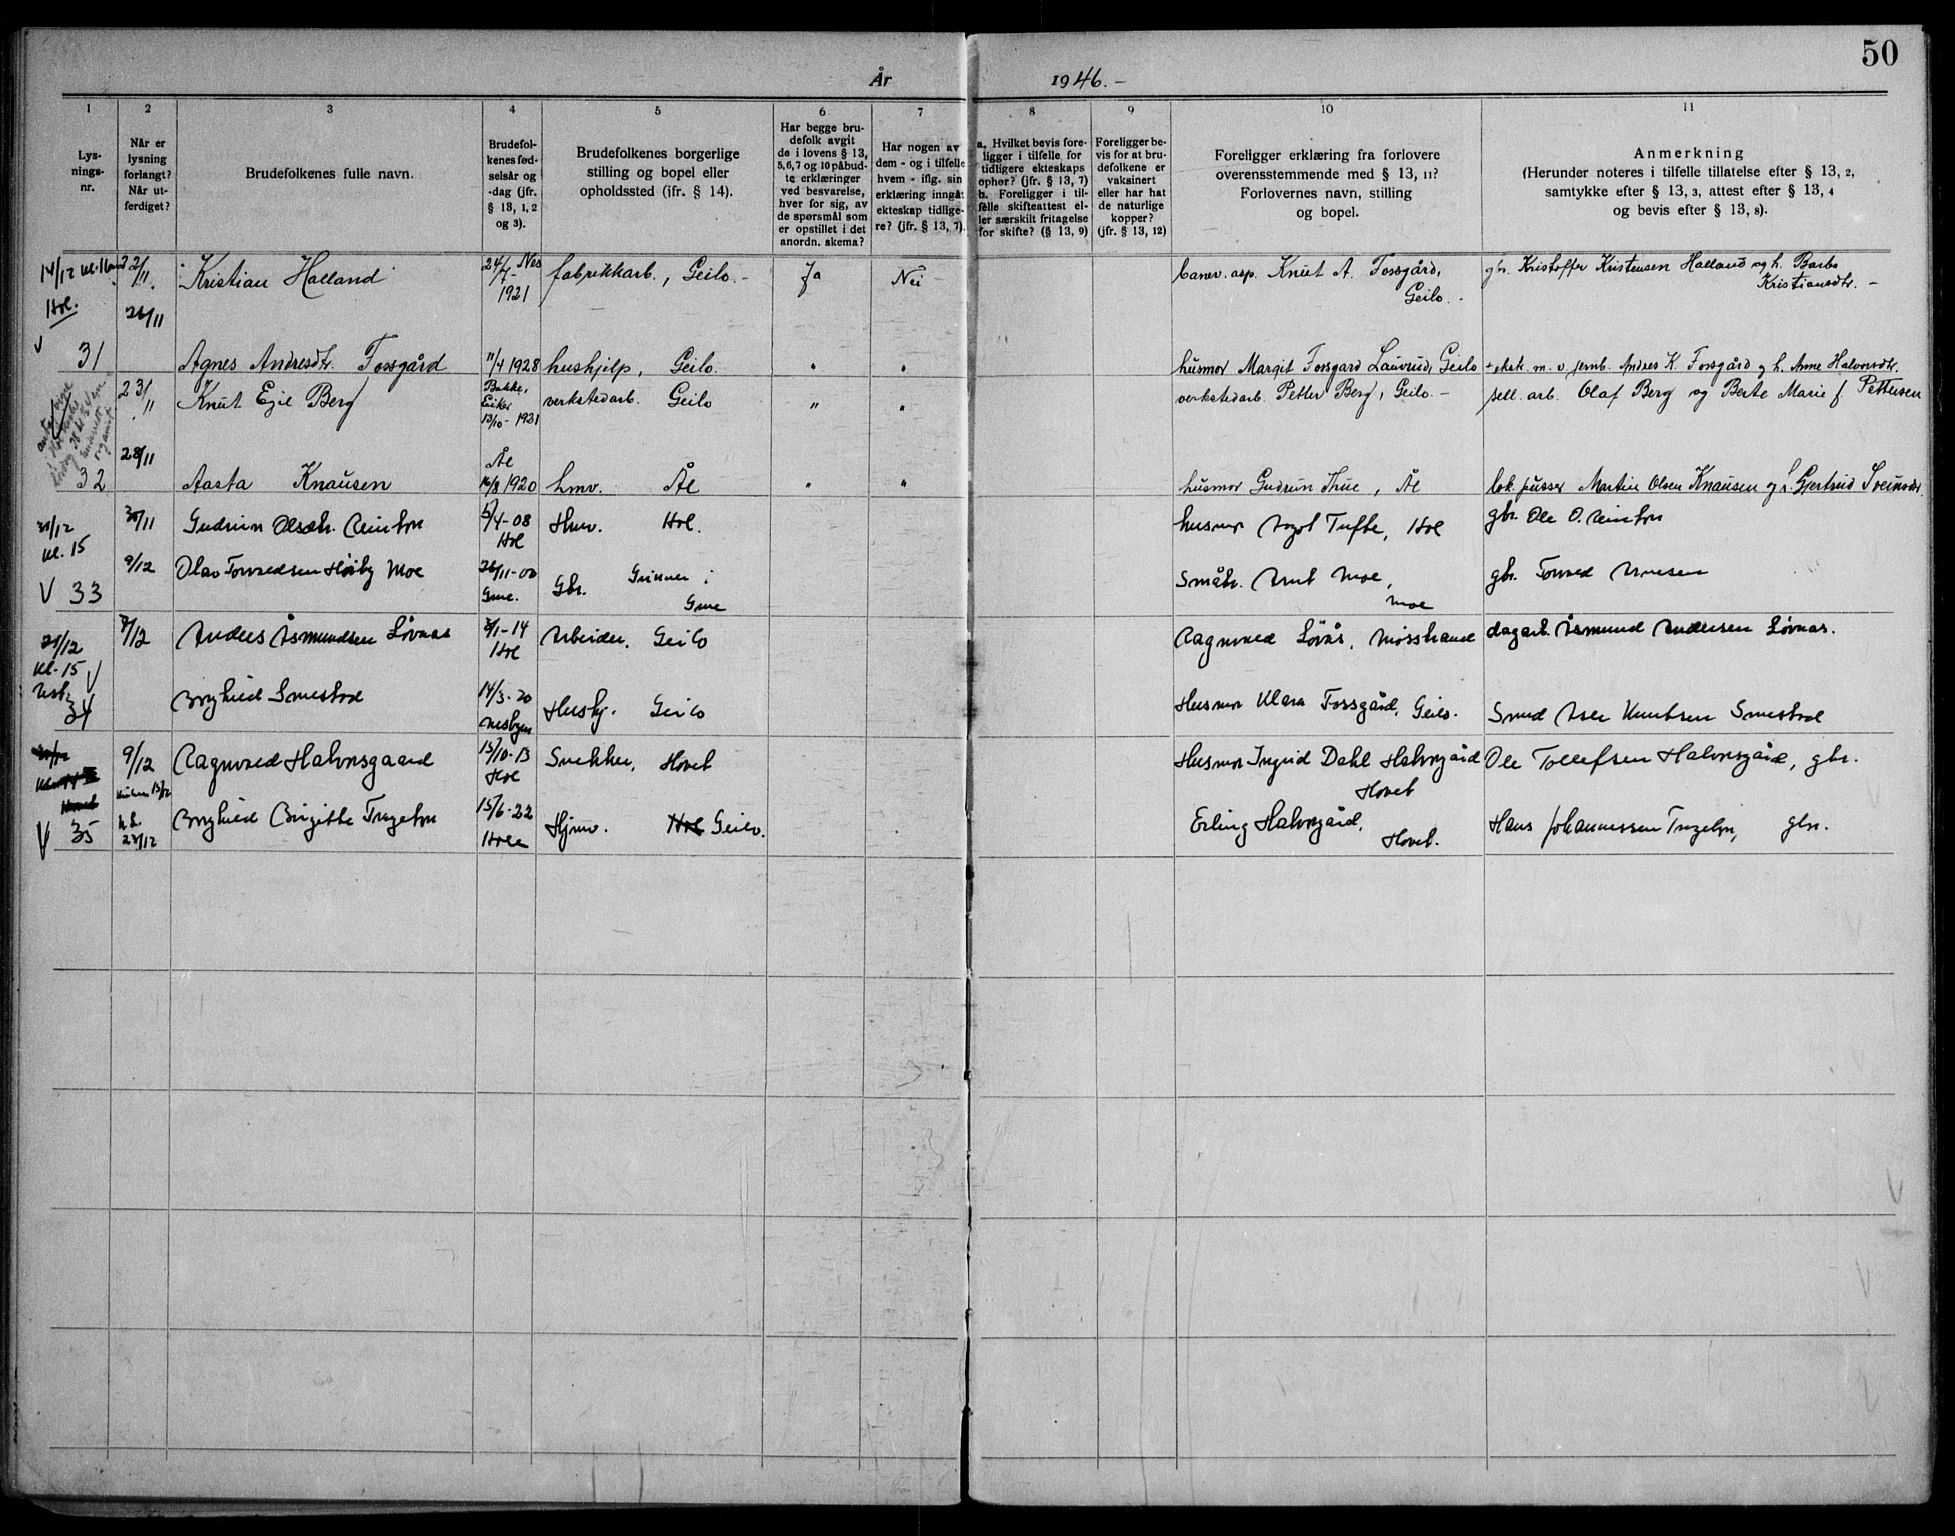 50
År 1946.-
1 2 3 4 5 6 7 8 9 10 11
Lys-
nings-
nr.
Når er
lysning
forlangt?
Når ut-
ferdiget?
Brudefolkenes fulle navn.
Brudefol-
kenes fød-
selsår og
-dag (jfr.
§ 13, 1, 2
og 3).
Brudefolkenes borgerlige
stilling og bopel eller
opholdssted (ifr. § 14).
Har begge bru-
defolk avgit
de i lovens § 13,
5,6,7 og 10 påbud-
te erklæringer
ved besvarelse,
hver for sig, av
de spørsmål som
er opstillet i det
anordn. skema?
Har nogen av
dem - og i tilfelle
hvem - iflg. sin
erklæring inngåt
ekteskap tidlige-
re? (jfr. § 13, 7).
a. Hvilket bevis fore-
ligger i tilfelle for
tidligere ekteskaps
ophør? (jfr. § 13, 7)
b. Foreligger i til-
felle skifteattest el-
ler særskilt fritagelse
for skifte? (§ 13, 9)
Foreligger be-
vis for at bru-
defolkene er
vaksinert
eller har hat
de naturlige
kopper?
(jfr. § 13, 12)
Foreligger erklæring fra forlovere
overensstemmende med § 13, 11?
Forlovernes navn, stilling
og bopel.
Anmerkning
(Herunder noteres i tilfelle tillatelse efter § 13, 2,
samtykke efter § 13, 3, attest efter § 13, 4
og bevis efter § 13, 8).
14/12 22/11 Kristian Halland 24/7- Nes fabrikkarb., Geilo. - Ja Nei banev. asp. Knut A. Fossgård, gbr. Kristoffer Kristensen Halland og h. Barbo
Hol. 26/11 1921 Geilo. - Kristiansdtr. -
V 31 Agnes Andresdtr. Fossgård 11/4 1928 hushjelp, Geilo. " " husmor Margit Fossgård Lauvrud, Geilo m. v. jernb. Andres K. Fossgård og h. Anne Halvorsdtr.
23/11 Knut Egil Berg Bakke, Eiker 13/10-1921 verkstedarb. Geilo " " verkstedarb. Petter Berg, Geilo. - sell. arb. Olaf Berg og Berte Marie f. Pettersen
28/11 Ål
32 Aasta Knausen 16/8 1920 hmv. Ål " " husmor Gudrun Thue, Ål lok. pusser Martin Olsen Knausen og h. Gjertrud Sveinsdtr.
30/11 Gudrun Olsdtr. Reinton 5/4-08 Hol Hmv. Hol. husmor Tufte, Hol gbr. Ole O. Reinton
kl. 15
V 33 9/12 Olav Torvaldsen Høiby Moe 26/11-00 Grue. Gbr. Grinner i Grue Småbr. Arnt Moe, Moe gbr. Torvald Arnesen
21/12 7/12 Anders Åsmundsen Løvnes 2/1-14 Hol Arbeider. Geilo Ragnvald dagarb. Åsmund Andersen Løvnes.
kl. 15 V
34 Borghild Smestad 14/3-20 Nesbyen Hushj. Geilo Husmor Klara Fossgård, Geilo. Smed Knutsen Smestad
9/12 Ragnvald Halvorsgaard 15/10-13 Hol Snekker, Hovet Husmor Ingrid Dahl Halvorsgård Ole Tollefsen Halvorsgård, gbr.
13/12 Hovet
V 35 28/12 Borghild Birgitte 15/6-22 Hole Hjmv. Hol Geilo. Erling Halvorsgård, Hovet. Hans Johannessen gbr.